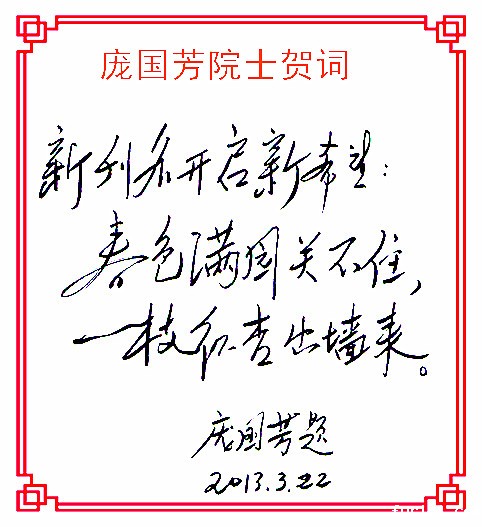 庞国芳院士贺词
新刊名开启新希望：
春色满园关不住，
一枝红杏出墙来。
庞国芳题
2013.3.22